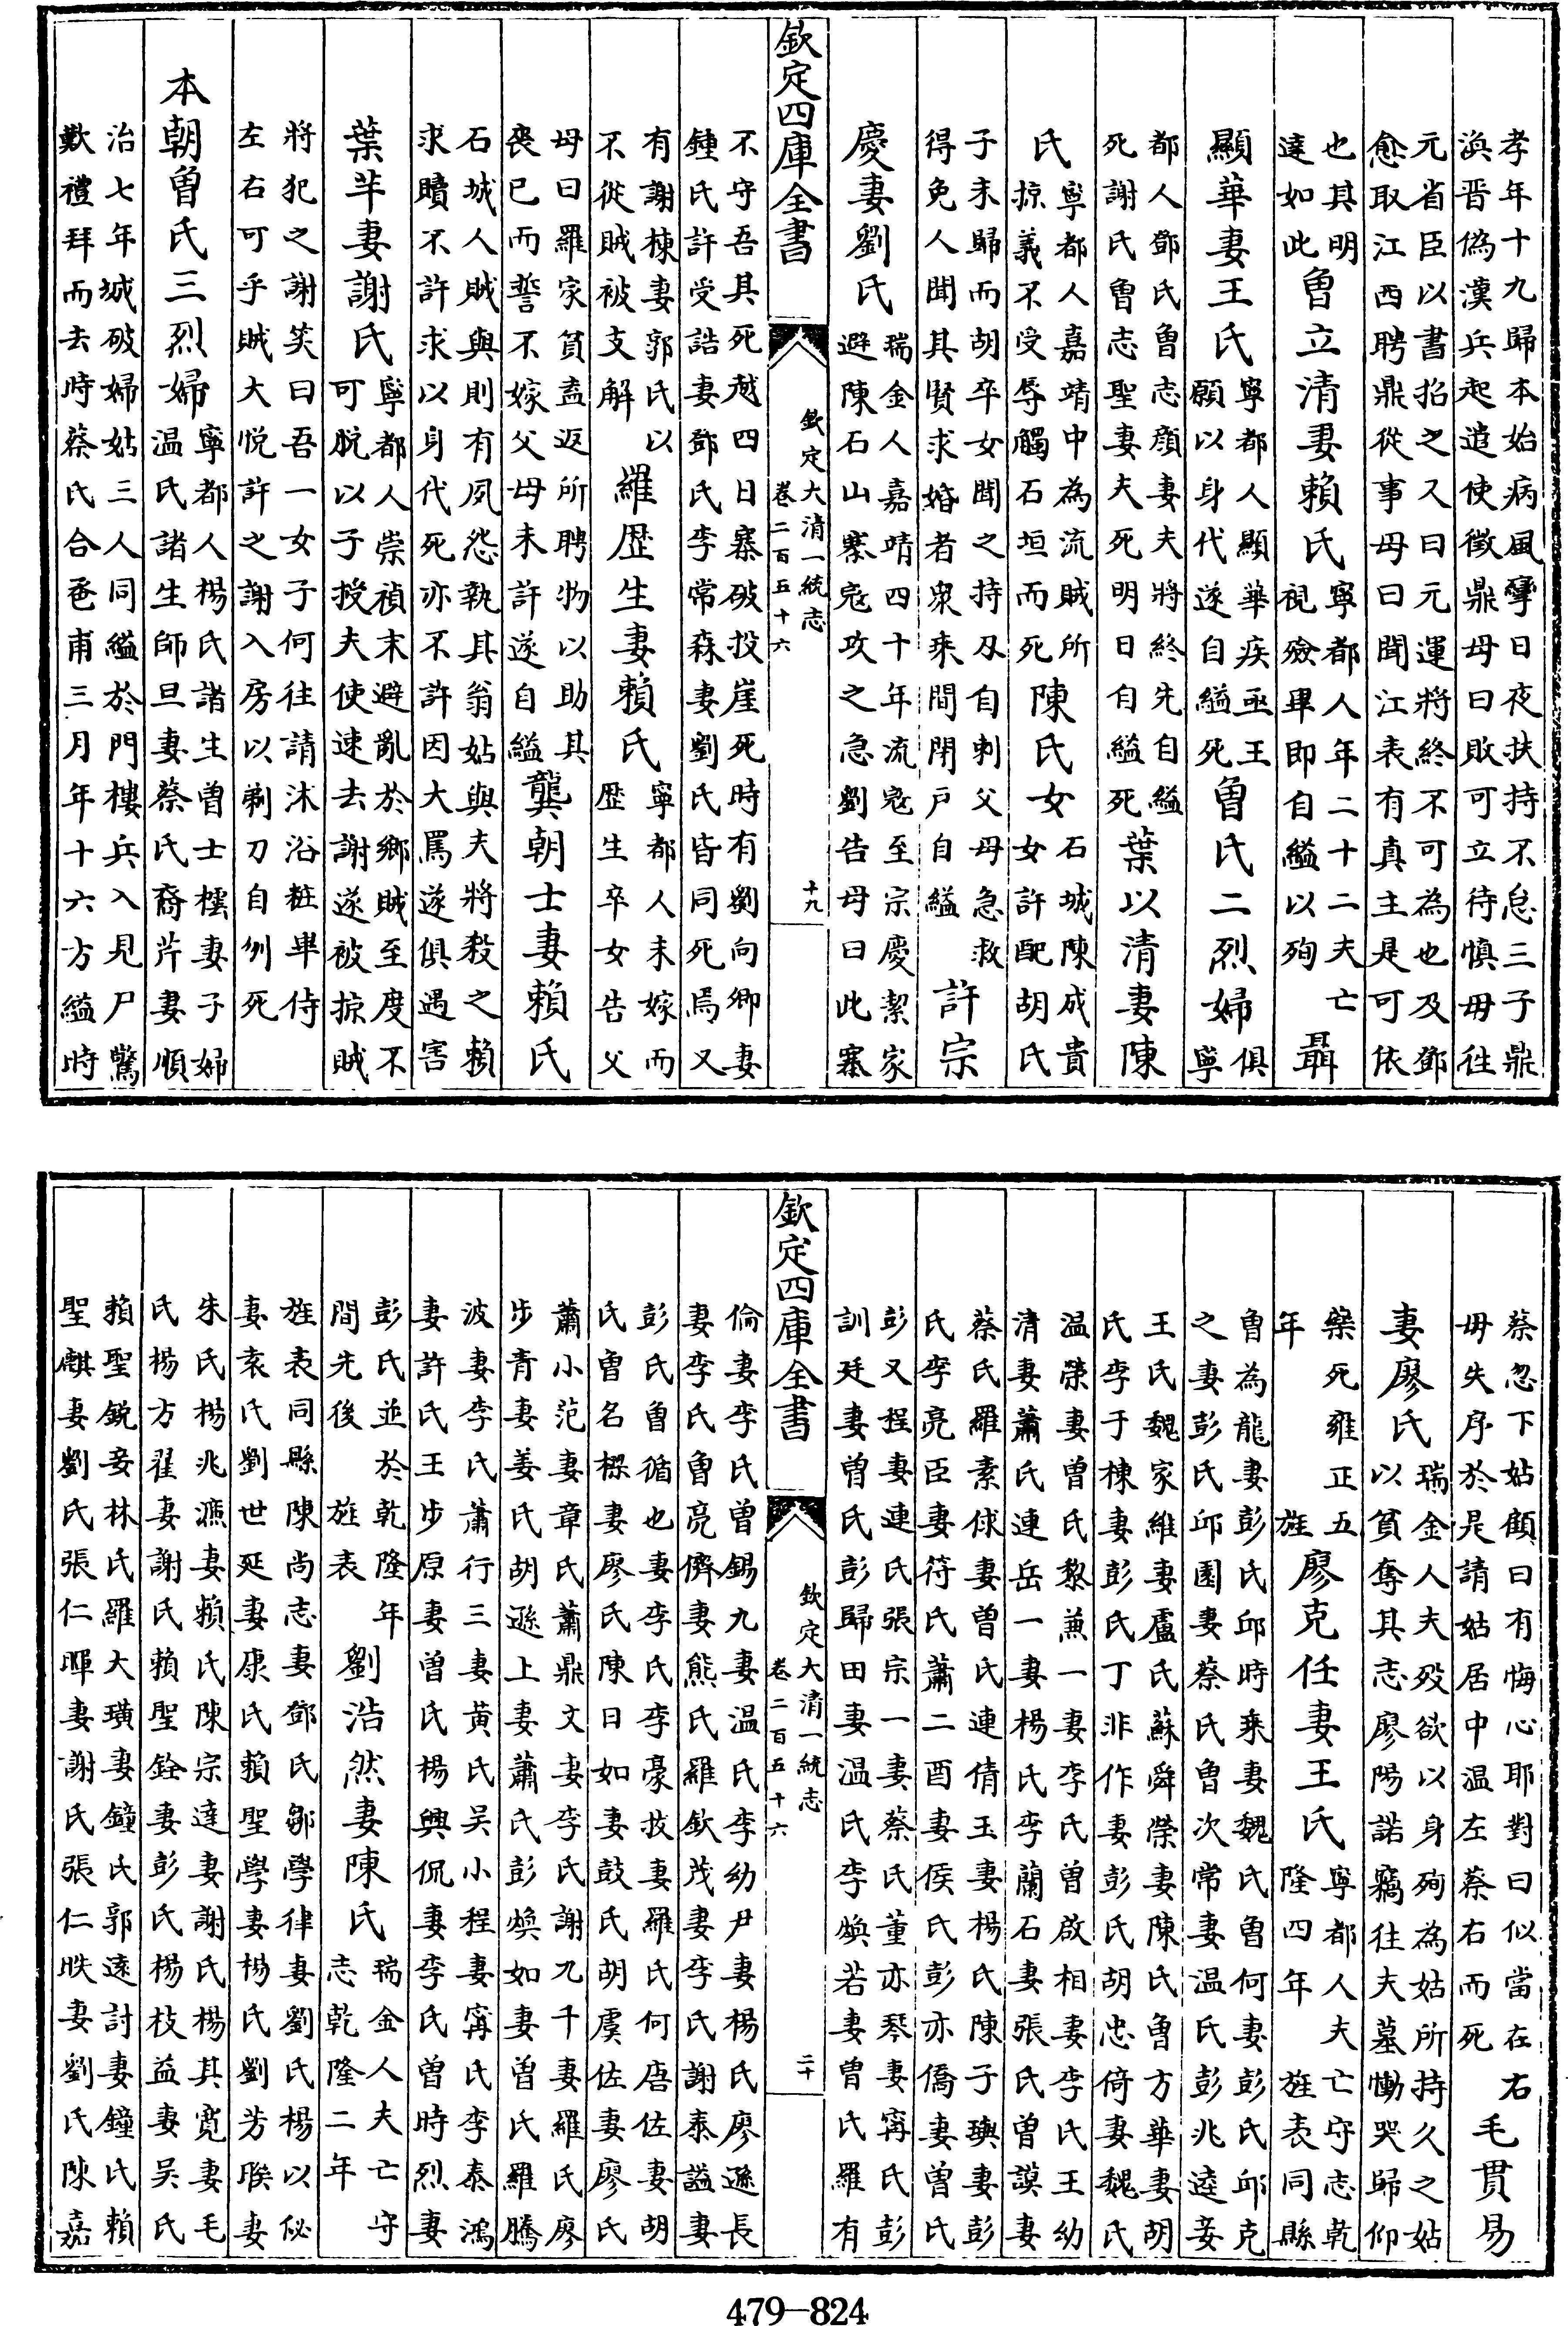 孝年十九歸本始病風攣日夜扶持不怠三子鼎
渙晋偽漢兵起遣使徵鼎母曰敗可立待慎毋往
元省臣以書招之又曰元運將終不可為也及鄧
愈取江西聘鼎從事母曰聞江表有真主是可依
也其明達如此曽立清妻賴氏寧都人年二十二夫亡視殮畢即自縊以殉聶
顯華妻王氏寧都人顯華疾亟王願以身代遂自縊死曽氏二烈婦俱寧
都人鄧氏曽志顔妻夫將終先自縊死謝氏曽志聖妻夫死明日自縊死葉以清妻陳
氏寧都人嘉靖中為流賊所掠義不受辱觸石垣而死陳氏女石城陳成貴女許配胡氏
子未歸而胡卒女聞之持刃自刺父母急救得免人聞其賢求婚者衆乘間閉戸自縊許宗
慶妻劉氏瑞金人嘉靖四十年流寇至宗慶潔家避陳石山寨寇攻之急劉告母曰此寨
欽定四庫全書
欽定大清一統志
卷二百五十六
十九
不守吾其死越四日寨破投崖死時有劉向卿妻
鍾氏許受誥妻鄧氏李常森妻劉氏皆同死焉又
有謝棟妻郭氏以不從賊被支解羅歴生妻賴氏寧都人未嫁而歴生卒女告父
母曰羅家貧盍返所聘物以助其喪已而誓不嫁父母未許遂自縊龔朝士妻賴氏
石城人賊與則有夙怨執其翁姑與夫將殺之賴
求贖不許求以身代死亦不許因大罵遂俱遇害
葉芊妻謝氏寧都人崇禎末避亂於鄉賊至度不可脱以子授夫使速去謝遂被掠賊
將犯之謝笑曰吾一女子何往請沐浴粧畢侍
左右可乎賊大悦許之謝入房以剃刀自刎死
本朝曽氏三烈婦寧都人楊氏諸生曽士櫺妻子婦温氏諸生師旦妻蔡氏裔片妻順
治七年城破婦姑三人同縊於門樓兵入見尸驚
歎禮拜而去時蔡氏合卺甫三月年十六方縊時
蔡忽下姑顧曰有悔心耶對曰似當在右毋失序於是請姑居中温左蔡右而死毛貫易
妻廖氏瑞金人夫殁欲以身殉為姑所持久之姑以貧奪其志廖陽諾竊往夫墓慟哭歸仰
藥死雍正五年旌廖克任妻王氏寧都人夫亡守志乾隆四年旌表同縣
曽為龍妻彭氏邱時乘妻魏氏曽何妻彭氏邱克
之妻彭氏邱園妻蔡氏曽次常妻温氏彭兆逵妾
王氏魏家維妻盧氏蘇舜榮妻陳氏曽方華妻胡
氏李于棟妻彭氏丁非作妻彭氏胡忠倚妻魏氏
温榮妻曽氏黎兼一妻李氏曽啟相妻李氏王幼
清妻蕭氏連岳一妻楊氏李蘭石妻張氏曽謨妻
蔡氏羅素俅妻曽氏連倩玉妻楊氏陳子璵妻彭
氏李亮臣妻符氏蕭二酉妻侯氏彭亦僑妻曽氏
彭又程妻連氏張宗一妻蔡氏董亦琴妻甯氏彭
訓廷妻曽氏彭歸田妻温氏李煥若妻曽氏羅有
欽定四庫全書
欽定大清一統志
卷二百五十六
二十
倫妻李氏曽錫九妻温氏李幼尹妻楊氏廖遜長
妻李氏曽亮儕妻熊氏羅欽茂妻李氏謝泰謚妻
彭氏曽循也妻李氏李豪技妻羅氏何唐佐妻胡
氏曽名樑妻廖氏陳日如妻鼓氏胡虞佐妻廖氏
蕭小范妻章氏蕭鼎文妻李氏謝九千妻羅氏廖
步青妻姜氏胡遜上妻蕭氏彭煥如妻曽氏羅騰
波妻李氏蕭行三妻黄氏吴小程妻甯氏李泰鴻
妻許氏王步原妻曽氏楊興侃妻李氏曽時烈妻
彭氏並於乾隆年間先後旌表劉浩然妻陳氏瑞金人夫亡守志乾隆二年
旌表同縣陳尚志妻鄧氏鄒學律妻劉氏楊以佖
妻袁氏劉世延妻康氏賴聖學妻楊氏劉芳騋妻
朱氏楊兆㵐妻賴氏陳宗達妻謝氏楊其寛妻毛
氏楊方翟妻謝氏賴聖銓妻彭氏楊枝益妻吴氏
賴聖鋭妾林氏羅大璜妻鐘氏郭遠討妻鐘氏賴
聖麒妻劉氏張仁暉妻謝氏張仁昳妻劉氏陳嘉
479—824